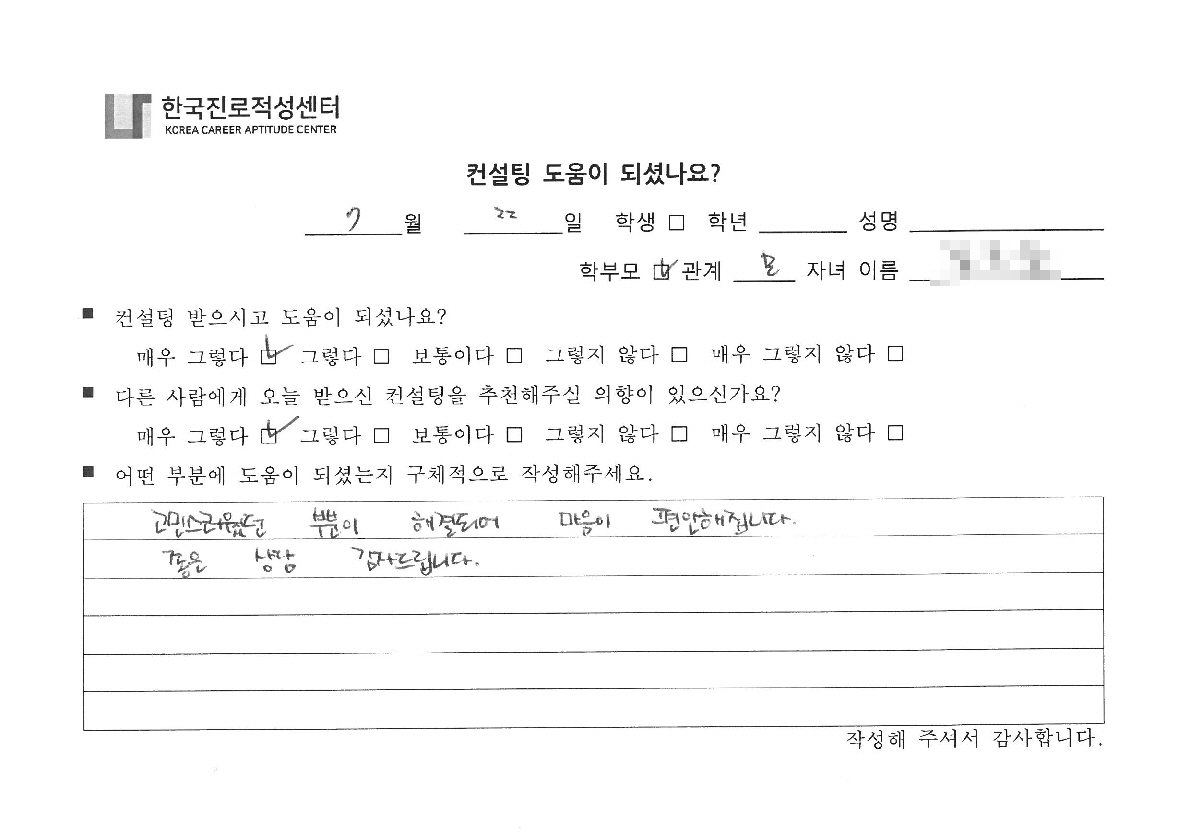 한국진로적성센터
KOREA CAREER APTITUDE CENTER
컨설팅 도움이 되셨나요?
7 월 22 일 학생 □ 학년 성명
학부모 ☑ 관계 모 자녀 이름
■ 컨설팅 받으시고 도움이 되셨나요?
매우 그렇다 ☑ 그렇다 □ 보통이다 □ 그렇지 않다 □ 매우 그렇지 않다 □
■ 다른 사람에게 오늘 받으신 컨설팅을 추천해주실 의향이 있으신가요?
매우 그렇다 ☑ 그렇다 □ 보통이다 □ 그렇지 않다 □ 매우 그렇지 않다 □
■ 어떤 부분에 도움이 되셨는지 구체적으로 작성해주세요.
고민스러웠던 부분이 해결되어 마음이 편안해집니다.
좋은 상담 감사드립니다.
작성해 주셔서 감사합니다.